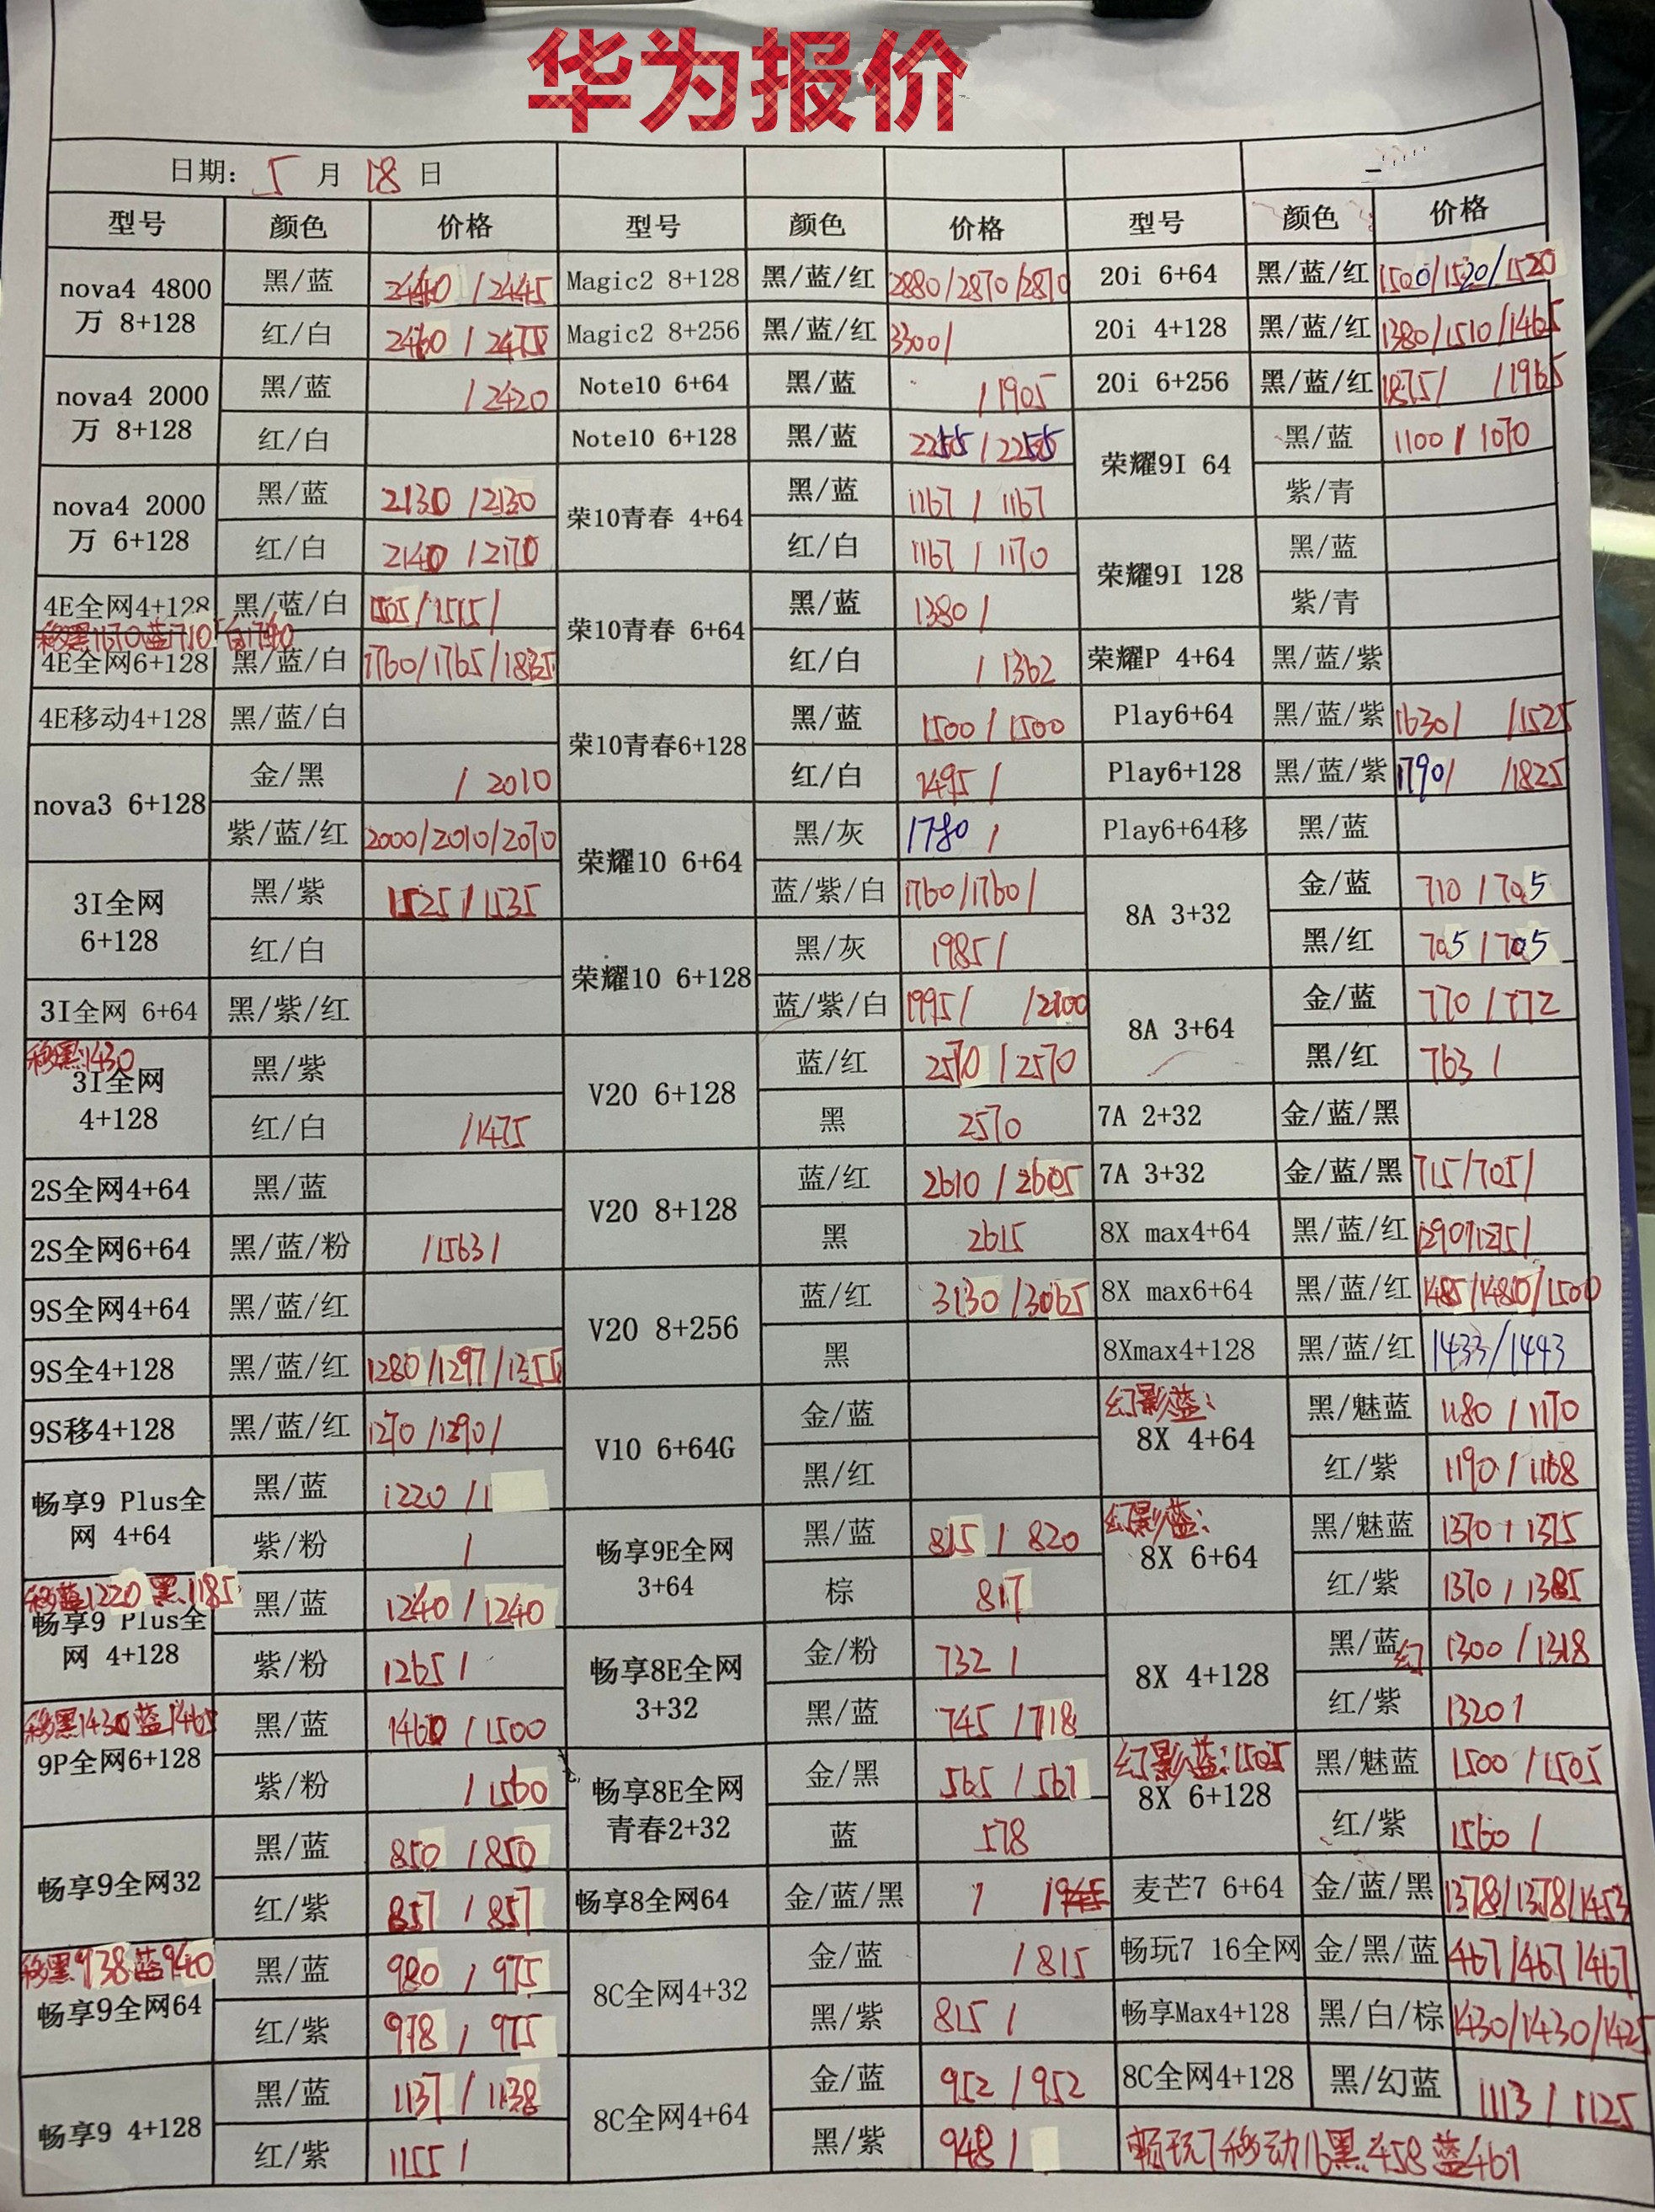 华为报价
日期: 5 月 18 日
型号 颜色 价格 型号 颜色 价格 型号 颜色 价格
nova4 4800万 8+128 黑/蓝 2440/2445
红/白 2460/2475
nova4 2000万 8+128 黑/蓝 /2420
红/白
nova4 2000万 6+128 黑/蓝 2130/2130
红/白 2140/2170
4E全网4+128 黑/蓝/白 1505/1515/
移黑1670蓝1710白1740
4E全网6+128 黑/蓝/白 1760/1765/1835
4E移动4+128 黑/蓝/白
nova3 6+128 金/黑 /2010
紫/蓝/红 2000/2010/2070
3I全网 6+128 黑/紫 1525/1535
红/白
3I全网 6+64 黑/紫/红
移黑:1430
3I全网 4+128 黑/紫
红/白 /1475
2S全网4+64 黑/蓝
2S全网6+64 黑/蓝/粉 /1563/
9S全网4+64 黑/蓝/红
9S全4+128 黑/蓝/红 1280/1297/1355
9S移4+128 黑/蓝/红 1270/1290/
畅享9 Plus全网 4+64 黑/蓝 1220/1
紫/粉 /
移蓝1220 黑1185
畅享9 Plus全网 4+128 黑/蓝 1240/1240
紫/粉 1265/
移黑1430蓝1465
9P全网6+128 黑/蓝 1460/1500
紫/粉 /1560
畅享9全网32 黑/蓝 850/850
红/紫 857/857
移黑938蓝940
畅享9全网64 黑/蓝 980/975
红/紫 978/975
畅享9 4+128 黑/蓝 1137/1138
红/紫 1155/
Magic2 8+128 黑/蓝/红 2880/2870/2870
Magic2 8+256 黑/蓝/红 3300/
Note10 6+64 黑/蓝 /1905
Note10 6+128 黑/蓝 2255/2255
荣10青春 4+64 黑/蓝 1167/1167
红/白 1167/1170
荣10青春 6+64 黑/蓝 1380/
红/白 /1362
荣10青春6+128 黑/蓝 1500/1500
红/白 1495/
荣耀10 6+64 黑/灰 1780/
蓝/紫/白 1760/1760/
荣耀10 6+128 黑/灰 1985/
蓝/紫/白 1995/ /2100
V20 6+128 蓝/红 2570/2570
黑 2570
V20 8+128 蓝/红 2610/2605
黑 2615
V20 8+256 蓝/红 3130/3065
黑
V10 6+64G 金/蓝
黑/红
畅享9E全网 3+64 黑/蓝 815/820
棕 817
畅享8E全网 3+32 金/粉 732/
黑/蓝 745/718
畅享8E全网 青春2+32 金/黑 565/561
蓝 578
畅享8全网64 金/蓝/黑 / /945
8C全网4+32 金/蓝 /815
黑/紫 815/
8C全网4+64 金/蓝 952/952
黑/紫 948/
20i 6+64 黑/蓝/红 1500/1520/1520
20i 4+128 黑/蓝/红 1380/1510/1465
20i 6+256 黑/蓝/红 1875/ /1965
荣耀9I 64 黑/蓝 1100/1070
紫/青
荣耀9I 128 黑/蓝
紫/青
荣耀P 4+64 黑/蓝/紫
Play6+64 黑/蓝/紫 1630/ /1525
Play6+128 黑/蓝/紫 1790/ /1825
Play6+64移 黑/蓝
8A 3+32 金/蓝 710/705
黑/红 705/705
8A 3+64 金/蓝 770/772
黑/红 763/
7A 2+32 金/蓝/黑
7A 3+32 金/蓝/黑 715/705/
8X max4+64 黑/蓝/红 1290/1275/
8X max6+64 黑/蓝/红 1485/1480/1500
8Xmax4+128 黑/蓝/红 1433/1443
幻影蓝:
8X 4+64 黑/魅蓝 1180/1170
红/紫 1190/1168
幻影蓝:
8X 6+64 黑/魅蓝 1370/1375
红/紫 1370/1385
8X 4+128 黑/蓝幻 1300/1318
红/紫 1320/
幻影蓝:1505
8X 6+128 黑/魅蓝 1500/1505
红/紫 1560/
麦芒7 6+64 金/蓝/黑 1378/1378/1453
畅玩7 16全网 金/黑/蓝 467/467/467
畅享Max4+128 黑/白/棕 1430/1430/1425
8C全网4+128 黑/幻蓝 1113/1125
畅玩7移动16黑:458蓝461